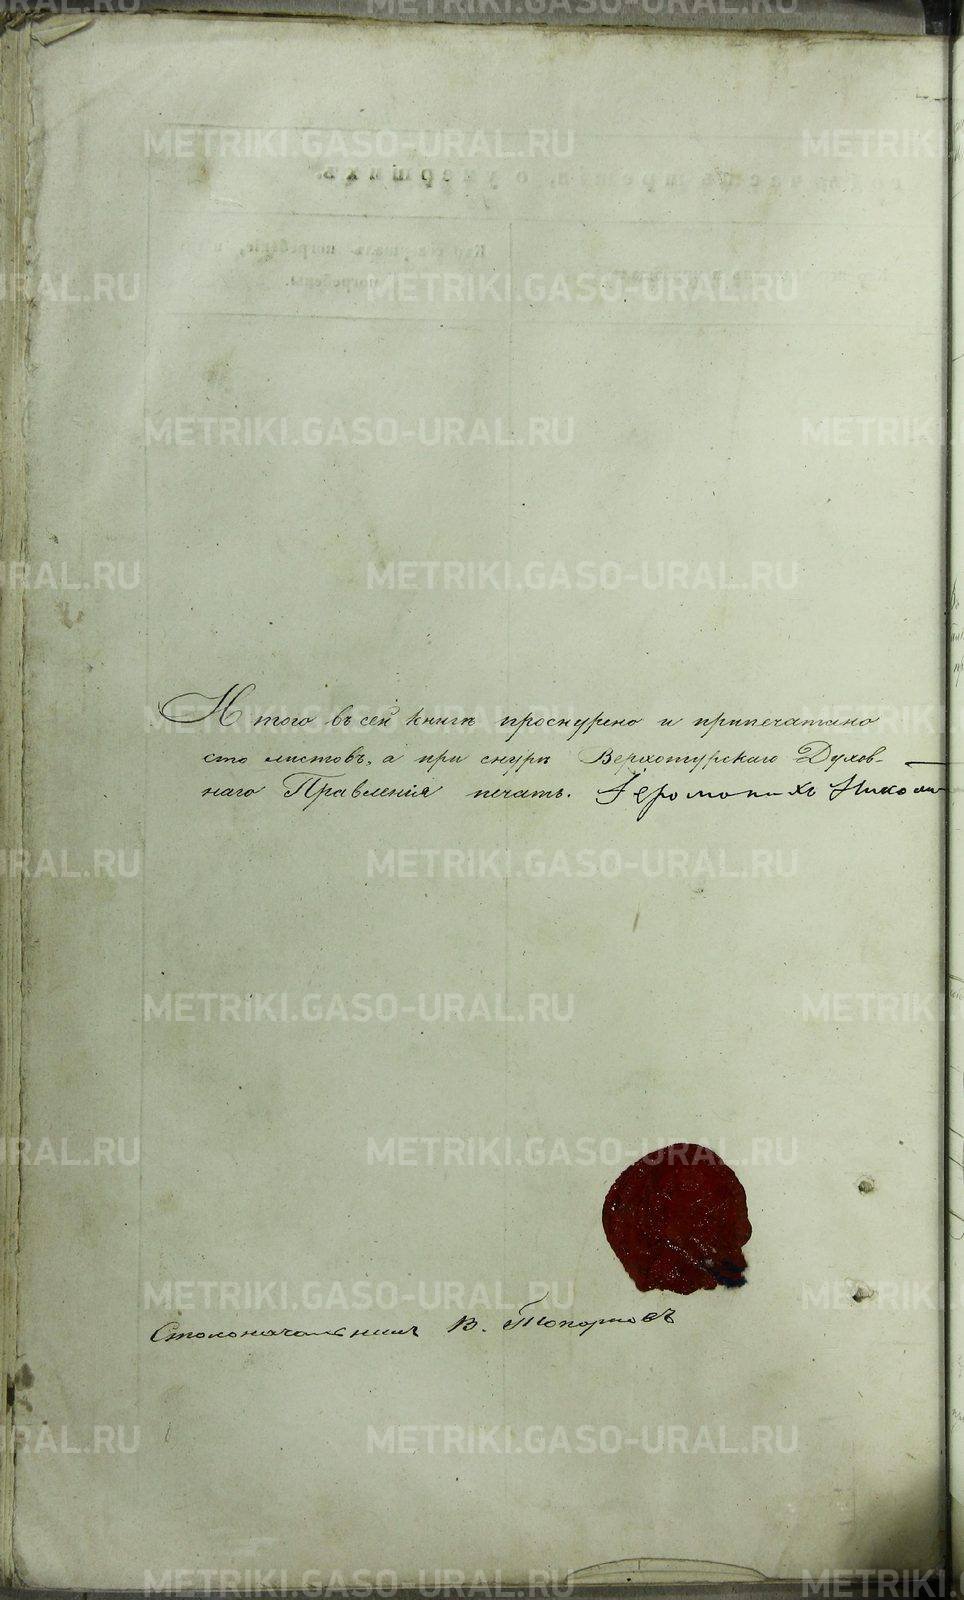 Итого въ сей книгѣ проснурено и припечатано
сто листовъ, а при снурѣ Верхотурскаго Духов-
наго Правленія печать. Іеромонахъ Никола
Столоначальникъ В. Топорковъ
METRIKI.GASO-URAL.RU